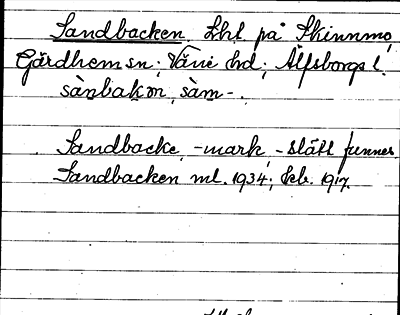 Sandbacken. Lht på Skinnmo,
Gärdhem sn; Väne hd; Älfsborgs l.
sànbakən, sàm-.
Sandbacke, -mark, -slätt finnes.
Sandbacken ml. 1934; Ekb. 1917.